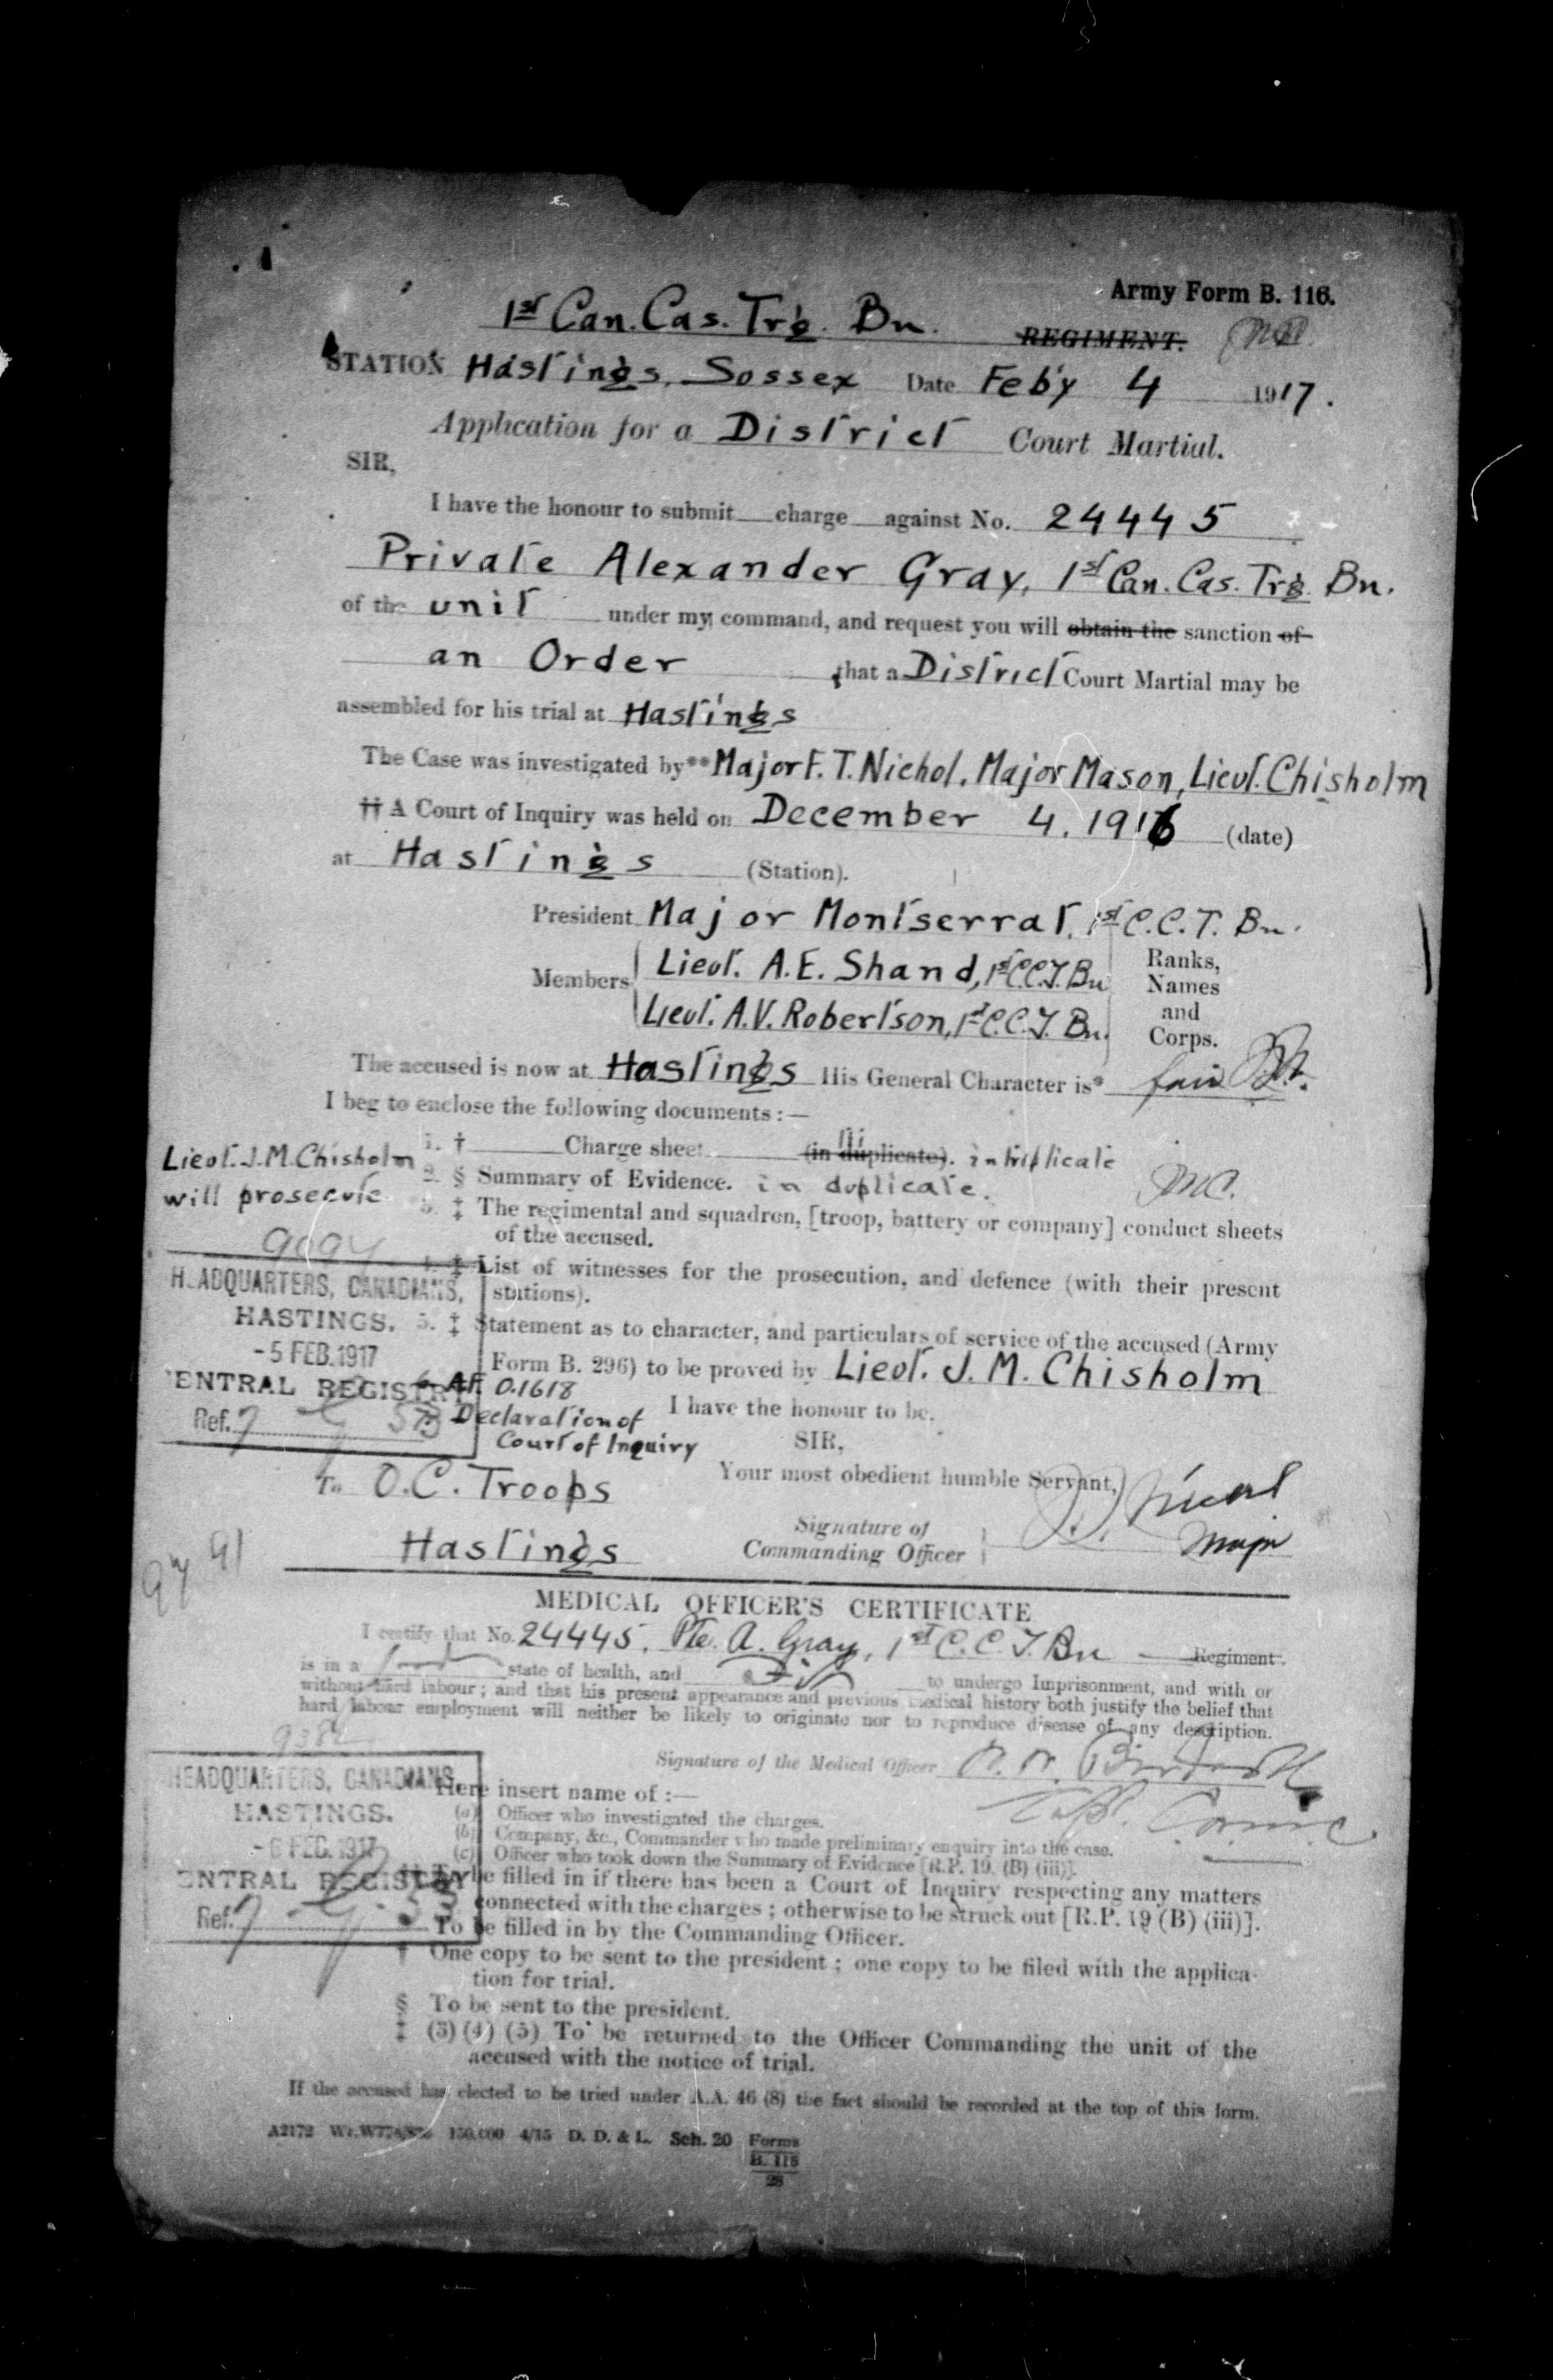 Army Form B. 116.
1st Can. Cas. Trg. Bn. REGIMENT.
STATION Hastings, Sossex Date Feby 4 1917.
Application for a District Court Martial.
SIR,
I have the honour to submit charge against No. 24445
Private Alexander Gray, 1st Can. Cas. Trg. Bn.
of the unit under my command, and request you will obtain the sanction of
an Order that a District Court Martial may be
assembled for his trial at Hastings
The Case was investigated by** Major F. T. Nichol, Major Mason, Lieut. Chisholm
†† A Court of Inquiry was held on December 4, 1916 (date)
at Hastings (Station).
President Major Montserrat, 1st C.C.T. Bn.
Members Lieut. A.E. Shand, 1st C.C.T. Bn
Lieut. A.V. Robertson, 1st C.C.T. Bn.
Ranks,
Names
and
Corps.
The accused is now at Hastings His General Character is* fair
I beg to enclose the following documents:—
1. † Charge sheet (in duplicate). in triplicate
Lieut. J.M. Chisholm
will prosecute
2. § Summary of Evidence. in duplicate.
3. ‡ The regimental and squadron, [troop, battery or company] conduct sheets
of the accused.
4. ‡ List of witnesses for the prosecution, and defence (with their present
stations).
5. ‡ Statement as to character, and particulars of service of the accused (Army
Form B. 296) to be proved by Lieut. J. M. Chisholm
HEADQUARTERS, CANADIANS,
HASTINGS.
- 5 FEB. 1917
CENTRAL REGISTRY
Ref.
6. AF. O.1618
Declaration of
Court of Inquiry
I have the honour to be,
SIR,
Your most obedient humble Servant,
To O.C. Troops
Hastings
Signature of
Commanding Officer
Major
MEDICAL OFFICER'S CERTIFICATE
I certify that No. 24445, Pte. A. Gray, 1st C.C.T. Bn Regiment.
is in a state of health, and Fit to undergo Imprisonment, and with or
without hard labour; and that his present appearance and previous medical history both justify the belief that
hard labour employment will neither be likely to originate nor to reproduce disease of any description.
Signature of the Medical Officer
HEADQUARTERS, CANADIANS,
HASTINGS.
- 6 FEB. 1917
CENTRAL REGISTRY
Ref.
Here insert name of:—
(a) Officer who investigated the charges.
(b) Company, &c., Commander who made preliminary enquiry into the case.
(c) Officer who took down the Summary of Evidence [R.P. 19. (B) (iii)].
†† To be filled in if there has been a Court of Inquiry respecting any matters
connected with the charges; otherwise to be struck out [R.P. 19 (B) (iii)].
To be filled in by the Commanding Officer.
† One copy to be sent to the president; one copy to be filed with the applica-
tion for trial.
§ To be sent to the president.
‡ (3) (4) (5) To be returned to the Officer Commanding the unit of the
accused with the notice of trial.
If the accused has elected to be tried under A.A. 46 (8) the fact should be recorded at the top of this form.
A2172 150,000 4/15 D. D. & L. Sch. 20 Forms
B. 116
28